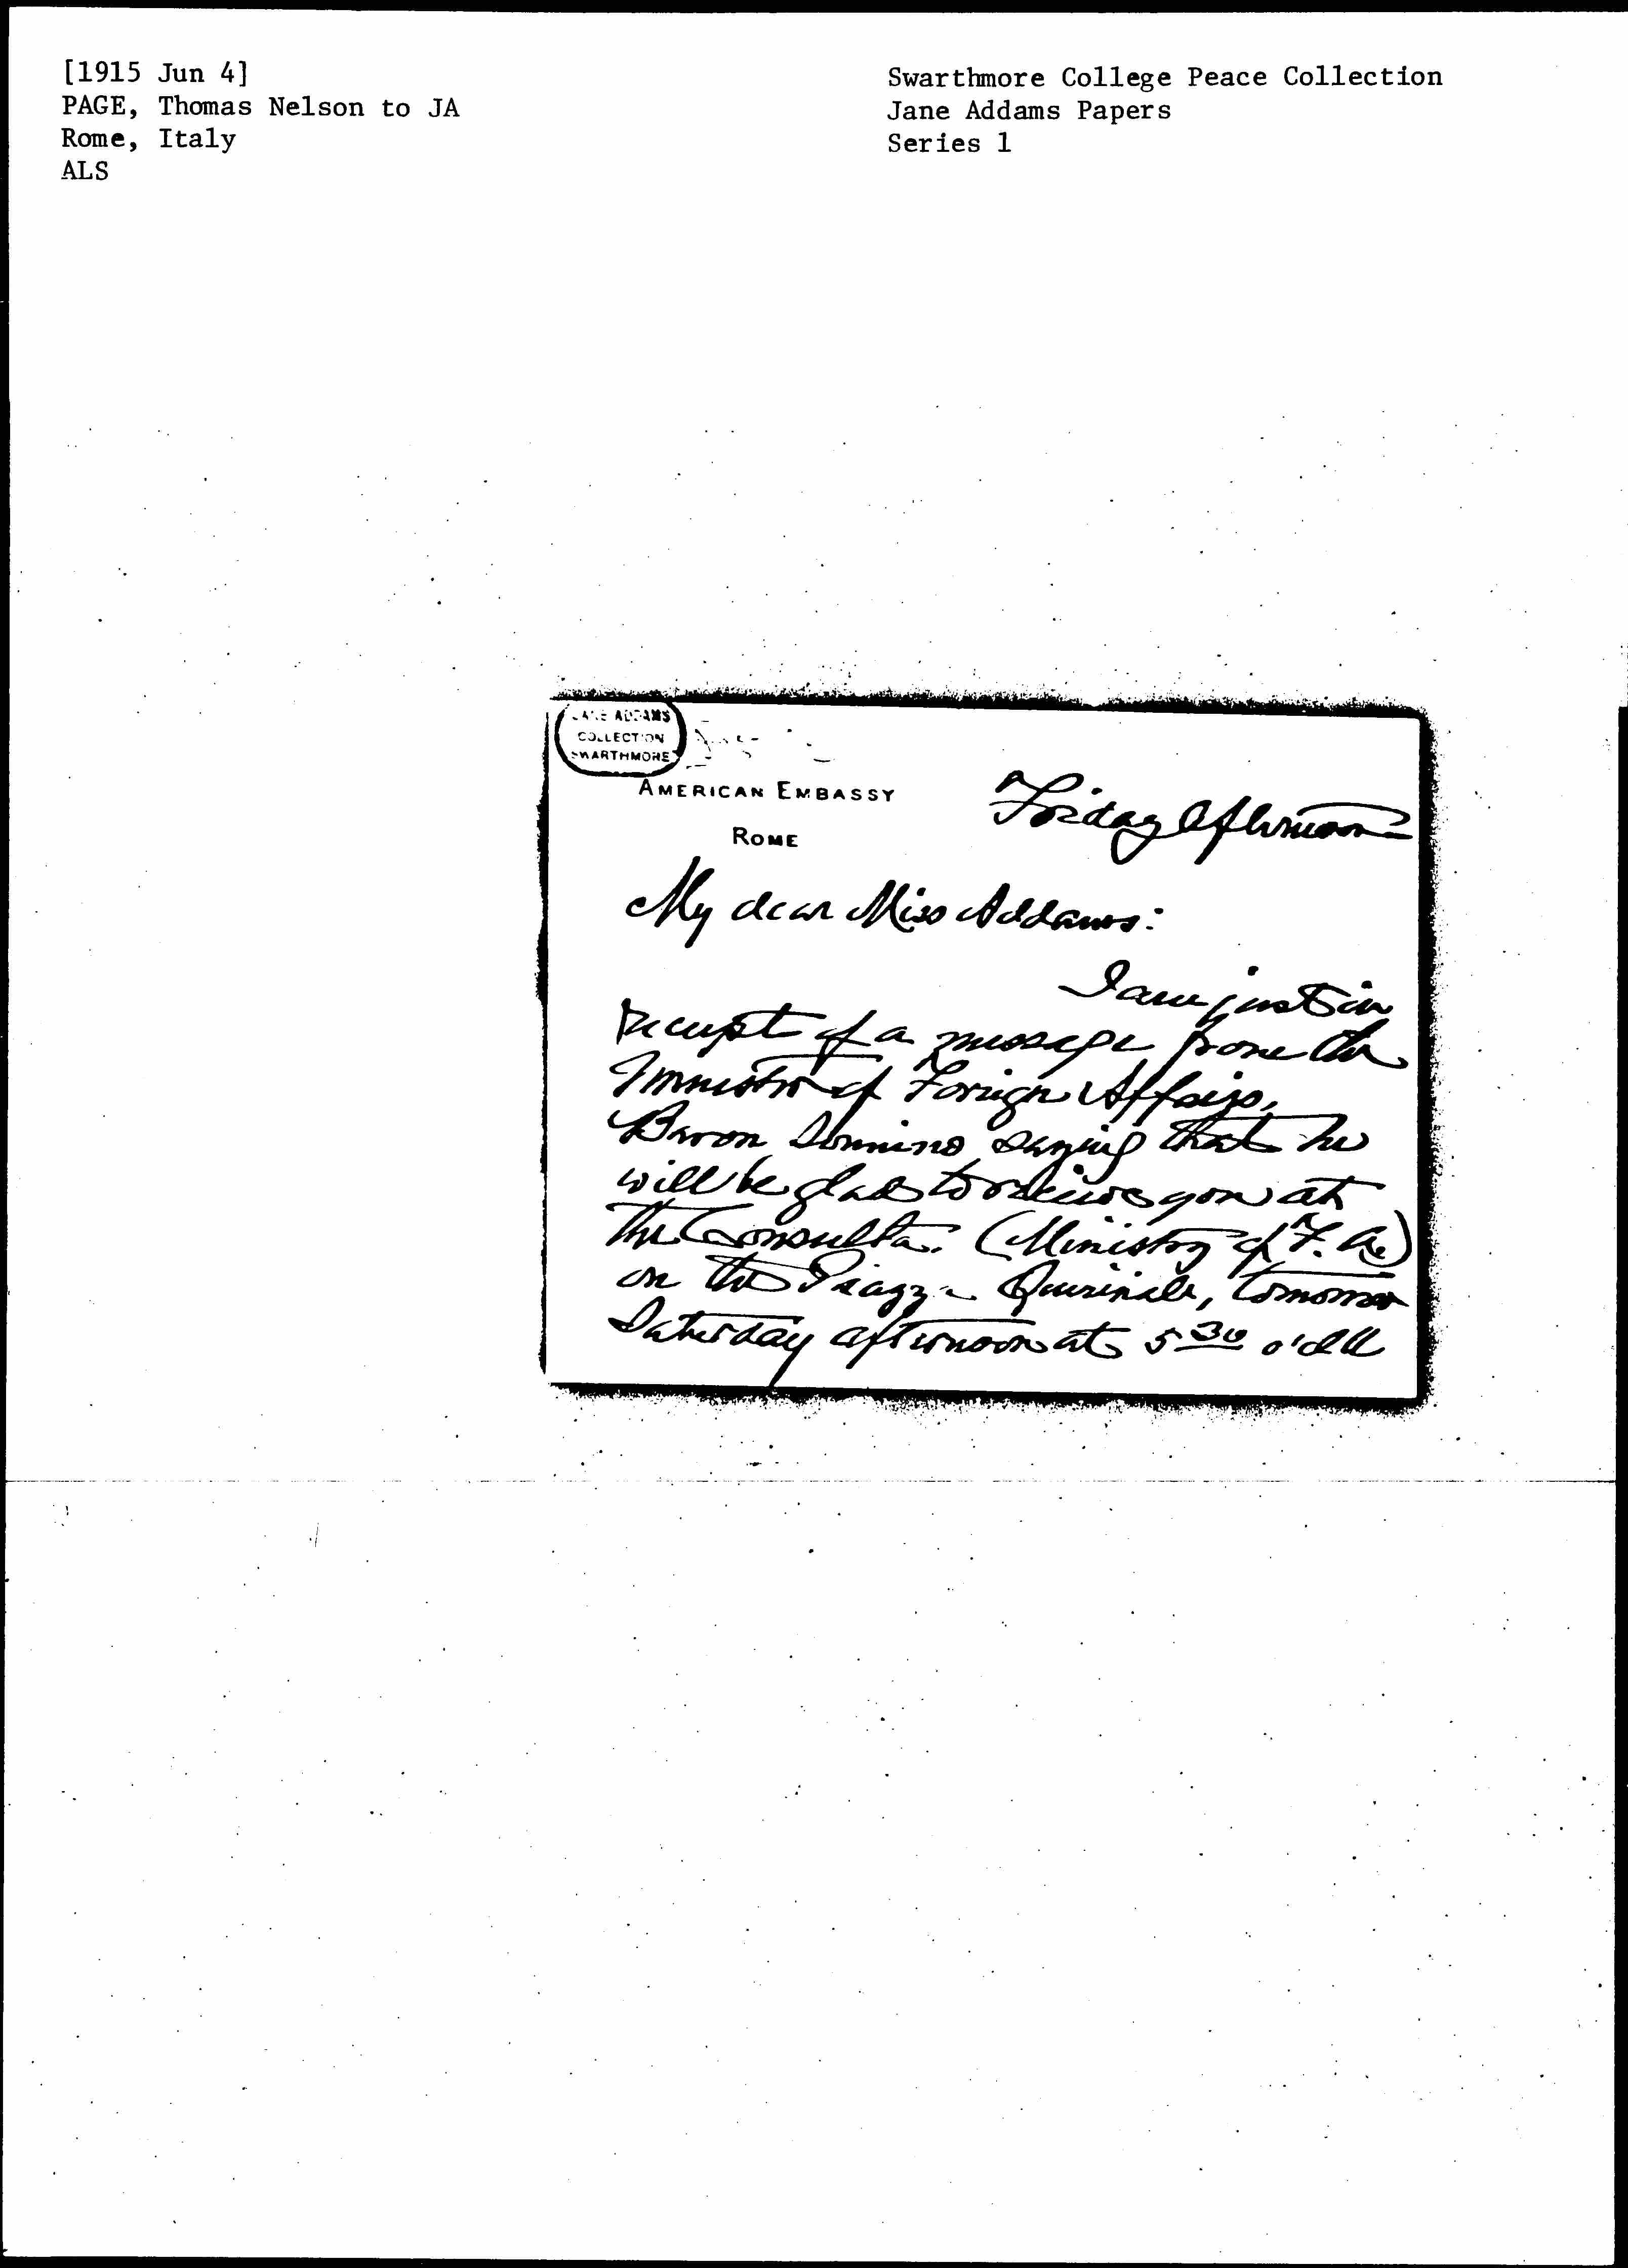 [1915 Jun 4]
PAGE, Thomas Nelson to JA
Rome, Italy
ALS
Swarthmore College Peace Collection
Jane Addams Papers
Series 1
JANE ADDAMS
COLLECTION
SWARTHMORE
AMERICAN EMBASSY
ROME
Friday Afternoon
My dear Miss Addams:
I am just in
receipt of a message from the
Minister of Foreign Affairs,
Baron Sonnino saying that he
will be glad to receive you at
the Consulta. (Ministry of F. A.)
on the Piazza Quirinale, tomorrow
Saturday afternoon at 5 30 o'clk